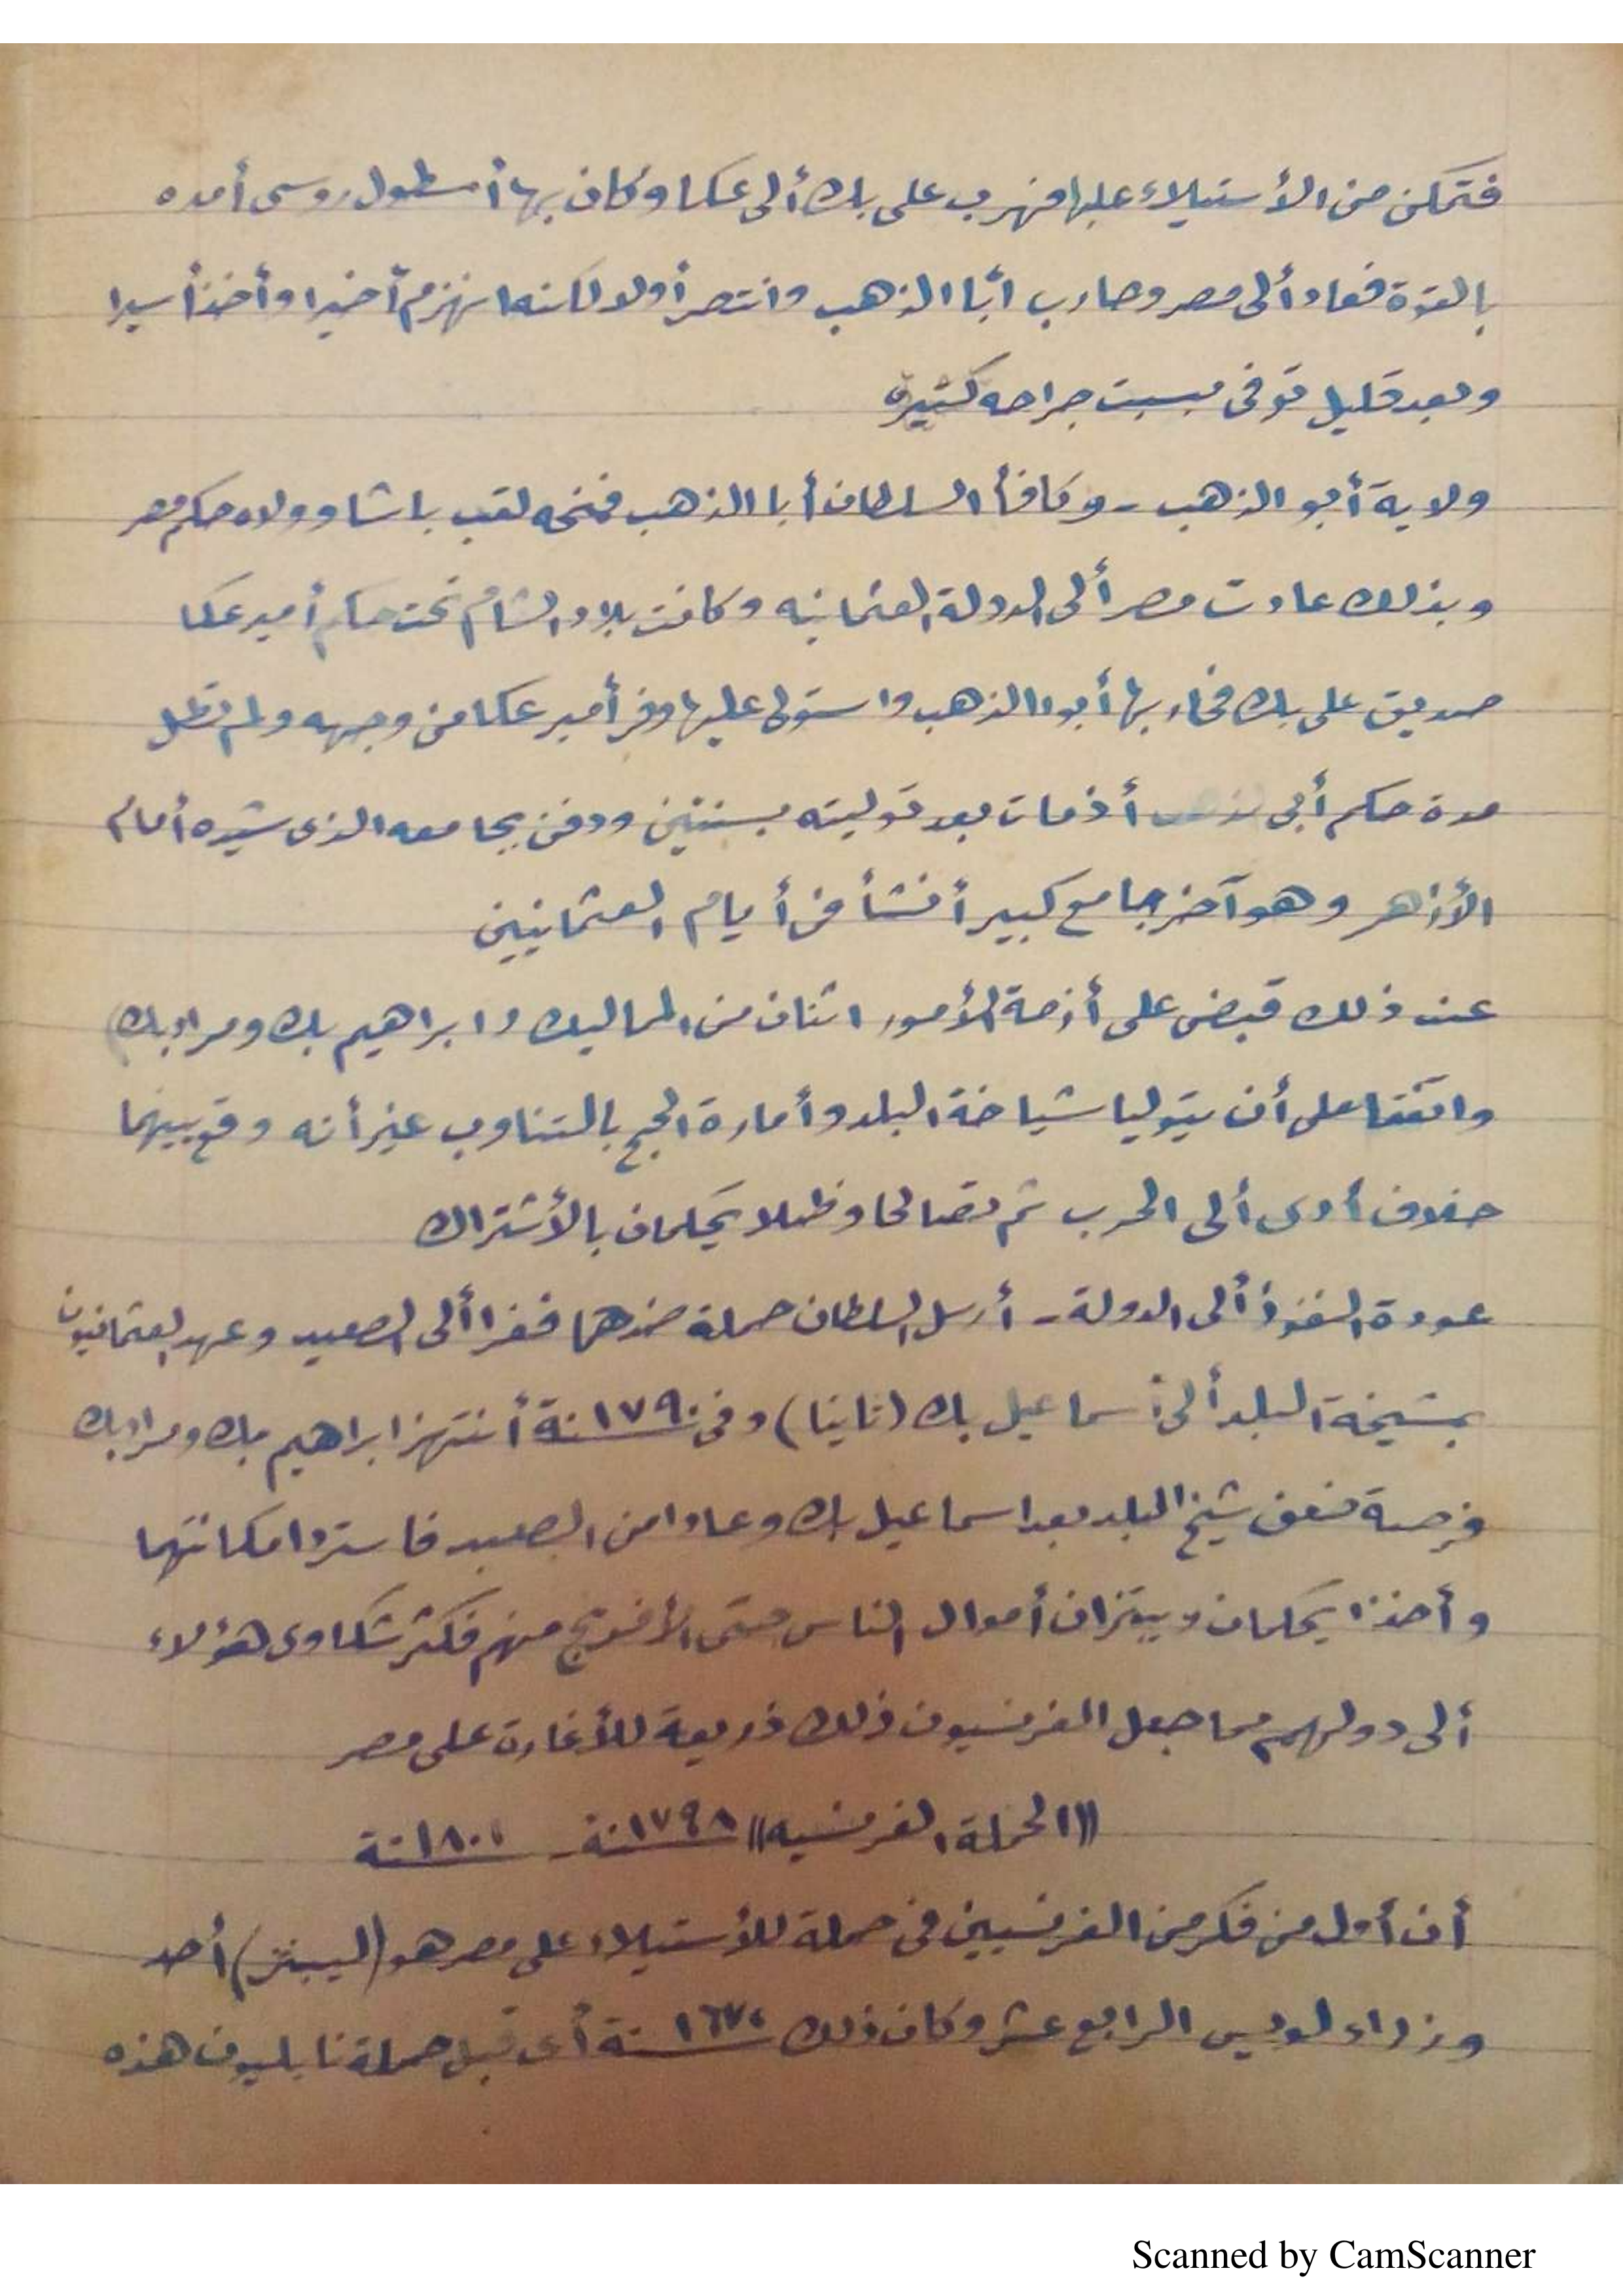 فتمكن من الأستيلاء عليها فهرب على بك ألى عكا وكان بها أسطول روسى أمده
بالقوة فعاد ألى مصر وحارب أبا الذهب وانتصر أولا لكنه انهزم أخيرا وأخذ أسيرا
وبعد قليل توفى بسبت جراحه كثيره
ولاية أبو الذهب - وكافأ السلطان أبا الذهب فمنحه لقب باشا وولاه حكم مصر
وبذلك عادت مصر ألى الدولة العثمانيه وكانت بلاد الشام تحت حكم أمير عكا
صديق على بك فحاربها أبو الذهب واستولى عليها وفر أمير عكا من وجهه ولم تطل
مدة حكم أبى الذهب أذ مات بعد توليته بسنتين ودفن بجامعه الذى شيده أمام
الأزهر وهو آخر جامع كبير أنشأ فى أيام العثمانيين
عند ذلك قبض على أزمة الأمور اثنان من المماليك وابراهيم بك ومراد بك
واتفقا على أن يتوليا شياخة البلد وأمارة الحج بالتناوب غير أنه وقع بينهما
خلاف أدى ألى الحرب ثم تصالحا وظلا يحكمان بالأشتراك
عودة النفوذ ألى الدولة - أرسل السلطان حملة ضدهما ففرا ألى الصعيد وعهد العثمانيون
بمشيخة البلد ألى أسماعيل بك (ثانيا) وفى ١٧٩٠ سنة أنتهز ابراهيم بك ومراد بك
فرصة ضعف شيخ البلد بعد اسماعيل بك وعادا من الصعيد فاستردا مكانتهما
وأخذا يحكمان ويبتزان أموال الناس حتى الأفرنج منهم فكثر شكاوى هؤلاء
ألى دولهم مما جعل الفرنسيون ذلك ذريعة للأغارة على مصر
((الحملة الفرنسيه)) ١٧٩٨ سنة - ١٨٠١ سنة
أن أول من فكر من الفرنسيين فى حملة للأستيلاء على مصر هو (ليبنتز) أحد
وزراء لويس الرابع عشر وكان ذلك ١٦٧٠ سنة أى قبل حملة نابليون هذه
Scanned by CamScanner